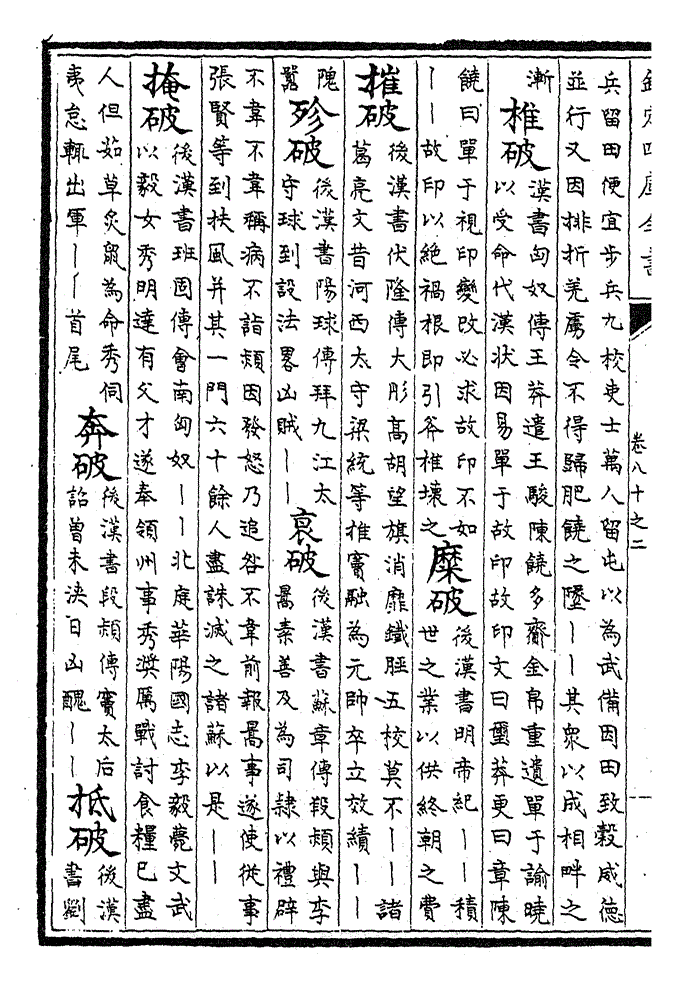 欽定四庫全書
卷八十之二
兵留田便宜步兵九校吏士萬人留屯以為武備因田致穀威德
並行又因排折羌虜令不得歸肥饒之墬丨丨其衆以成相畔之
漸
椎破
漢書匈奴傳王莽遣王駿陳饒多齎金帛重遺單于諭曉
以受命代漢狀因易單于故印故印文曰璽莽更曰章陳
饒曰單于視印變改必求故印不如
丨丨故印以絶禍根即引斧椎壞之
糜破
後漢書明帝紀丨丨積
世之業以供終朝之費
摧破
後漢書伏隆傳大肜高胡望旗消靡鐵脛五校莫不丨丨諸
葛亮文昔河西太守梁統等推竇融為元帥卒立效績丨丨
隗
囂
殄破
後漢書陽球傳拜九江太
守球到設法畧凶賊丨丨
衰破
後漢書蘇章傳段熲與李
暠素善及為司隷以禮辟
不韋不韋稱病不詣熲因發怒乃追咎不韋前報暠事遂使從事
張賢等到扶風并其一門六十餘人盡誅滅之諸蘇以是丨丨
掩破
後漢書班固傳會南匈奴丨丨北庭華陽國志李毅薨文武
以毅女秀明達有父才遂奉領州事秀奨厲戰討食糧已盡
人但茹草炙鼠為命秀伺
夷怠輒出軍丨丨首尾
奔破
後漢書段熲傳竇太后
詔曾未浹日凶醜丨丨
抵破
後漢
書劉